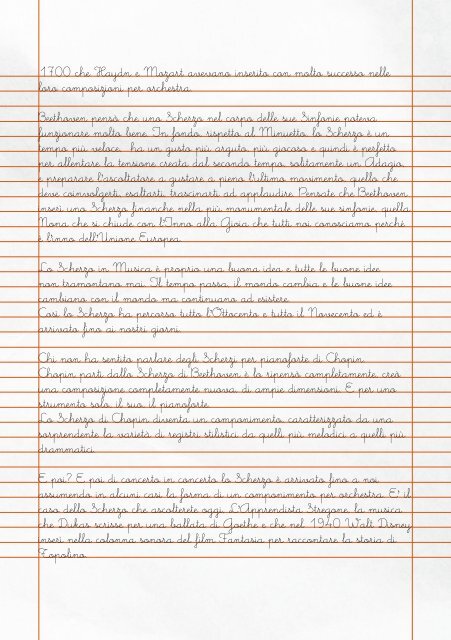 1700 che Haydn e Mozart avevano inserito con molto successo nelle
loro composizioni per orchestra.
Beethoven pensò che uno Scherzo nel corpo delle sue Sinfonie poteva
funzionare molto bene. In fondo, rispetto al Minuetto, lo Scherzo è un
tempo più veloce, ha un gusto più arguto, più giocoso e quindi è perfetto
per allentare la tensione creata dal secondo tempo, solitamente un Adagio,
e preparare l'ascoltatore a gustare a pieno l'ultimo movimento, quello che
deve coinvolgerti, esaltarti, trascinarti ad applaudire. Pensate che Beethoven
inserì uno Scherzo finanche nella più monumentale delle sue sinfonie, quella
Nona che si chiude con l'Inno alla Gioia che tutti noi conosciamo perchè
è l'inno dell'Unione Europea.
Lo Scherzo in Musica è proprio una buona idea e tutte le buone idee
non tramontano mai. Il tempo passa, il mondo cambia e le buone idee
cambiano con il mondo ma continuano ad esistere.
Così lo Scherzo ha percorso tutto l'Ottocento e tutto il Novecento ed è
arrivato fino ai nostri giorni.
Chi non ha sentito parlare degli Scherzi per pianoforte di Chopin.
Chopin partì dallo Scherzo di Beethoven e lo ripensò completamente, creò
una composizione completamente nuova, di ampie dimensioni. E per uno
strumento solo, il suo, il pianoforte.
Lo Scherzo di Chopin diventa un componimento caratterizzato da una
sorprendente la varietà di registri stilistici da quelli più melodici a quelli più
drammatici.
E poi? E poi di concerto in concerto lo Scherzo è arrivato fino a noi,
assumendo in alcuni casi la forma di un componimento per orchestra. E' il
caso dello Scherzo che ascolterete oggi, L'Apprendista Stregone, la musica
che Dukas scrisse per una ballata di Goethe e che nel 1940 Walt Disney
inserì nella colonna sonora del film Fantasia per raccontare la storia di
Topolino.